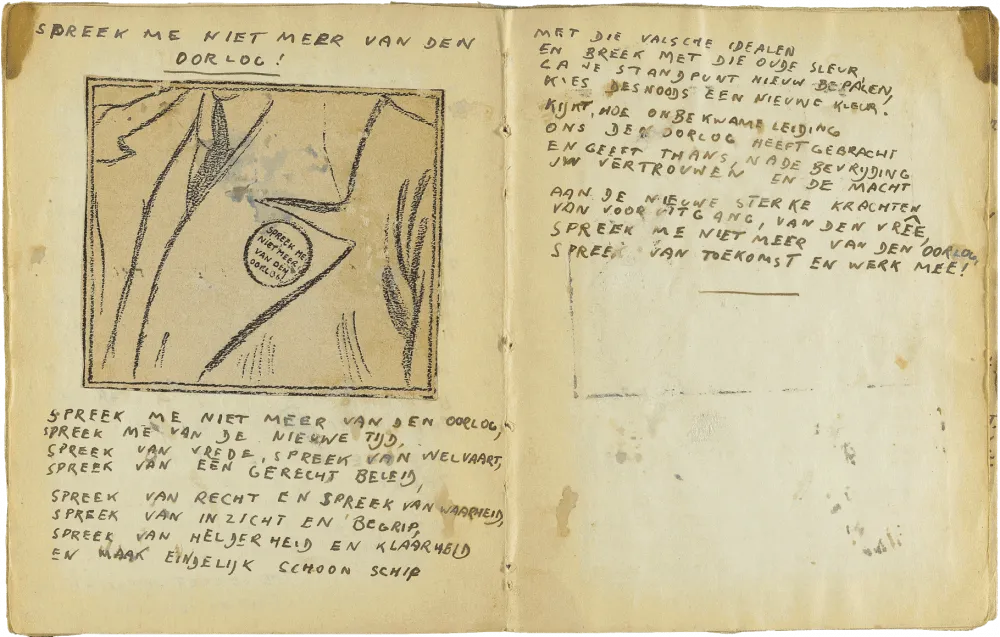 SPREEK ME NIET MEER VAN DEN
OORLOG!
SPREEK ME
NIET MEER
VAN DEN
OORLOG!
SPREEK ME NIET MEER VAN DEN OORLOG,
SPREEK ME VAN DE NIEUWE TIJD,
SPREEK VAN VREDE, SPREEK VAN WELVAART,
SPREEK VAN EEN GERECHT BELEID,
SPREEK VAN RECHT EN SPREEK VAN WAARHEID,
SPREEK VAN INZICHT EN BEGRIP,
SPREEK VAN HELDERHEID EN KLAARHEID
EN MAAK EINDELIJK SCHOON SCHIP
MET DIE VALSCHE IDEALEN
EN BREEK MET DIE OUDE SLEUR
GA JE STANDPUNT NIEUW BEPALEN,
KIES DESNOODS EEN NIEUWE KLEUR.
KIJKT, HOE ONBEKWAME LEIDING
ONS DEN OORLOG HEEFT GEBRACHT
EN GEEFT THANS, NA DE BEVRIJDING
UW VERTROUWEN EN DE MACHT
AAN DE NIEUWE STERKE KRACHTEN
VAN VOORUITGANG, VAN DEN VRÊE,
SPREEK ME NIET MEER VAN DEN OORLOG,
SPREEK VAN TOEKOMST EN WERK MEE!